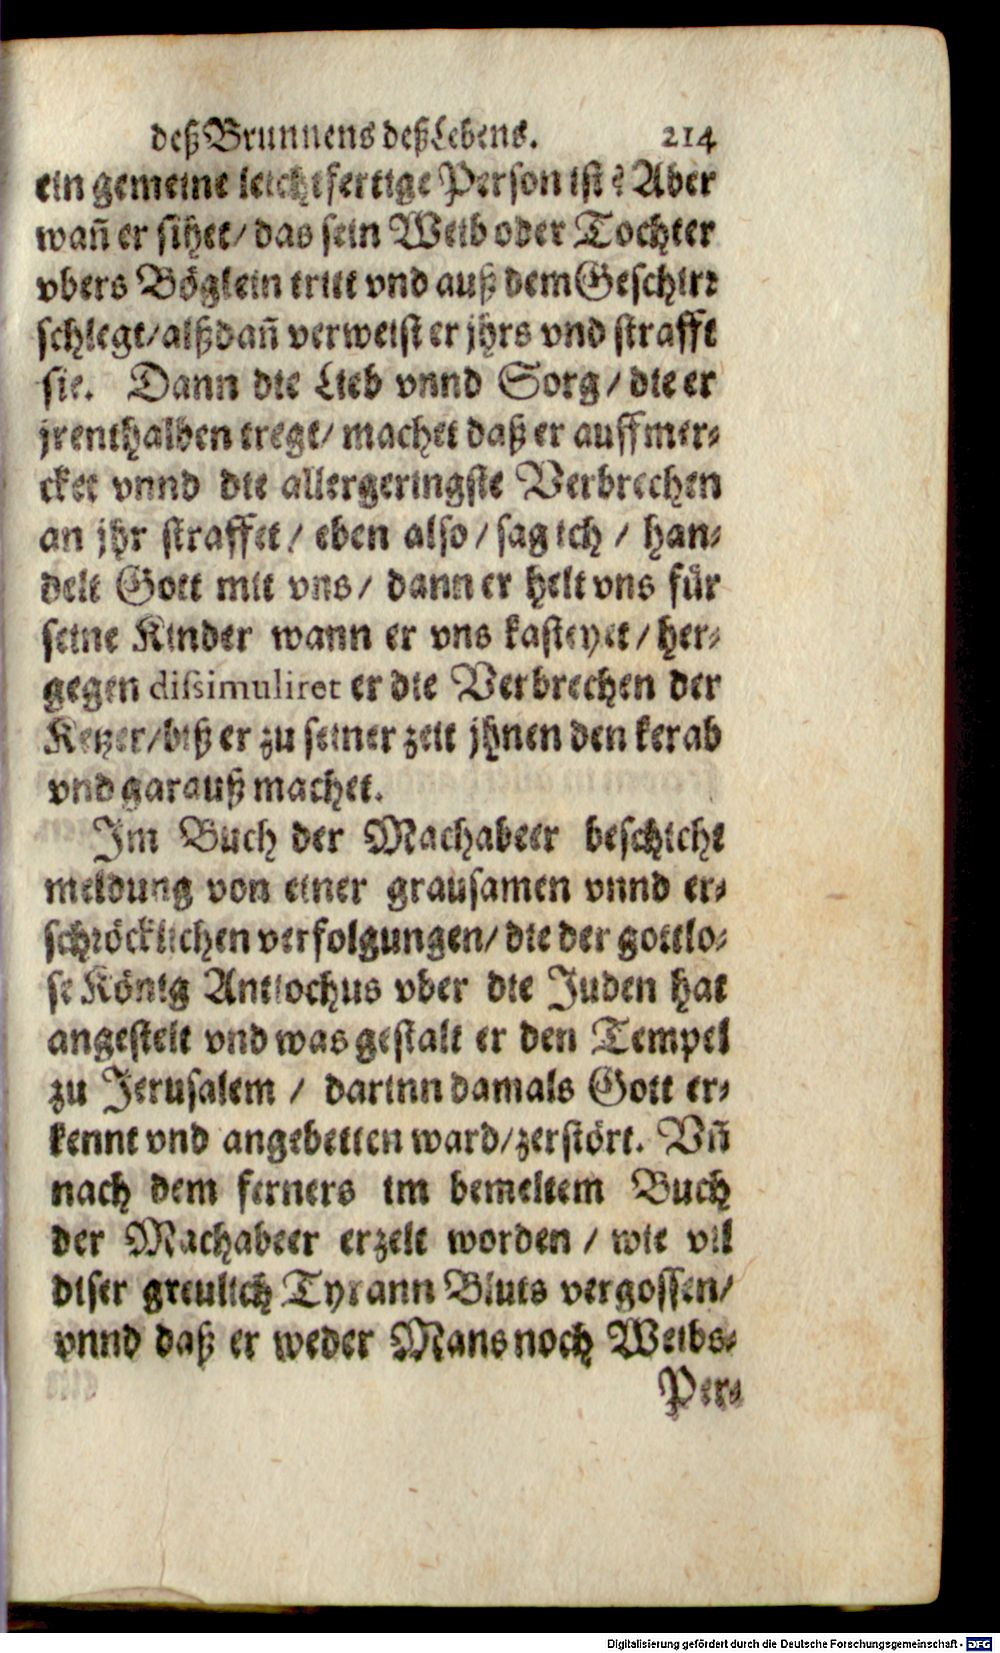 deß Brunnens deß Lebens. 214
ein gemeine leichtfertige Person ist? Aber
wañ er sihet/ das sein Weib oder Tochter
vbers Böglein tritt vnd auß dem Geschirr
schlegt/ alßdañ verweist er jhrs vnd strafft
sie. Dann die Lieb vnnd Sorg/ die er
jrenthalben tregt/ machet daß er auffmer-
cket vnnd die allergeringste Verbrechen
an jhr straffet/ eben also/ sag ich/ han-
delt Gott mit vns/ dann er helt vns für
seine Kinder wann er vns kasteyet/ her-
gegen dissimuliret er die Verbrechen der
Ketzer/ biß er zu seiner zeit jhnen den kerab
vnd garauß machet.
Im Buch der Machabeer beschicht
meldung von einer grausamen vnnd er-
schröcklichen verfolgungen/ die der gottlo-
se König Antiochus vber die Juden hat
angestelt vnd was gestalt er den Tempel
zu Jerusalem/ darinn damals Gott er-
kennt vnd angebetten ward/ zerstört. Vñ
nach dem ferners im bemeltem Buch
der Machabeer erzelt worden/ wie vil
diser greulich Tyrann Bluts vergossen/
vnnd daß er weder Mans noch Weibs-
Per-
Digitalisierung gefördert durch die Deutsche Forschungsgemeinschaft - DFG